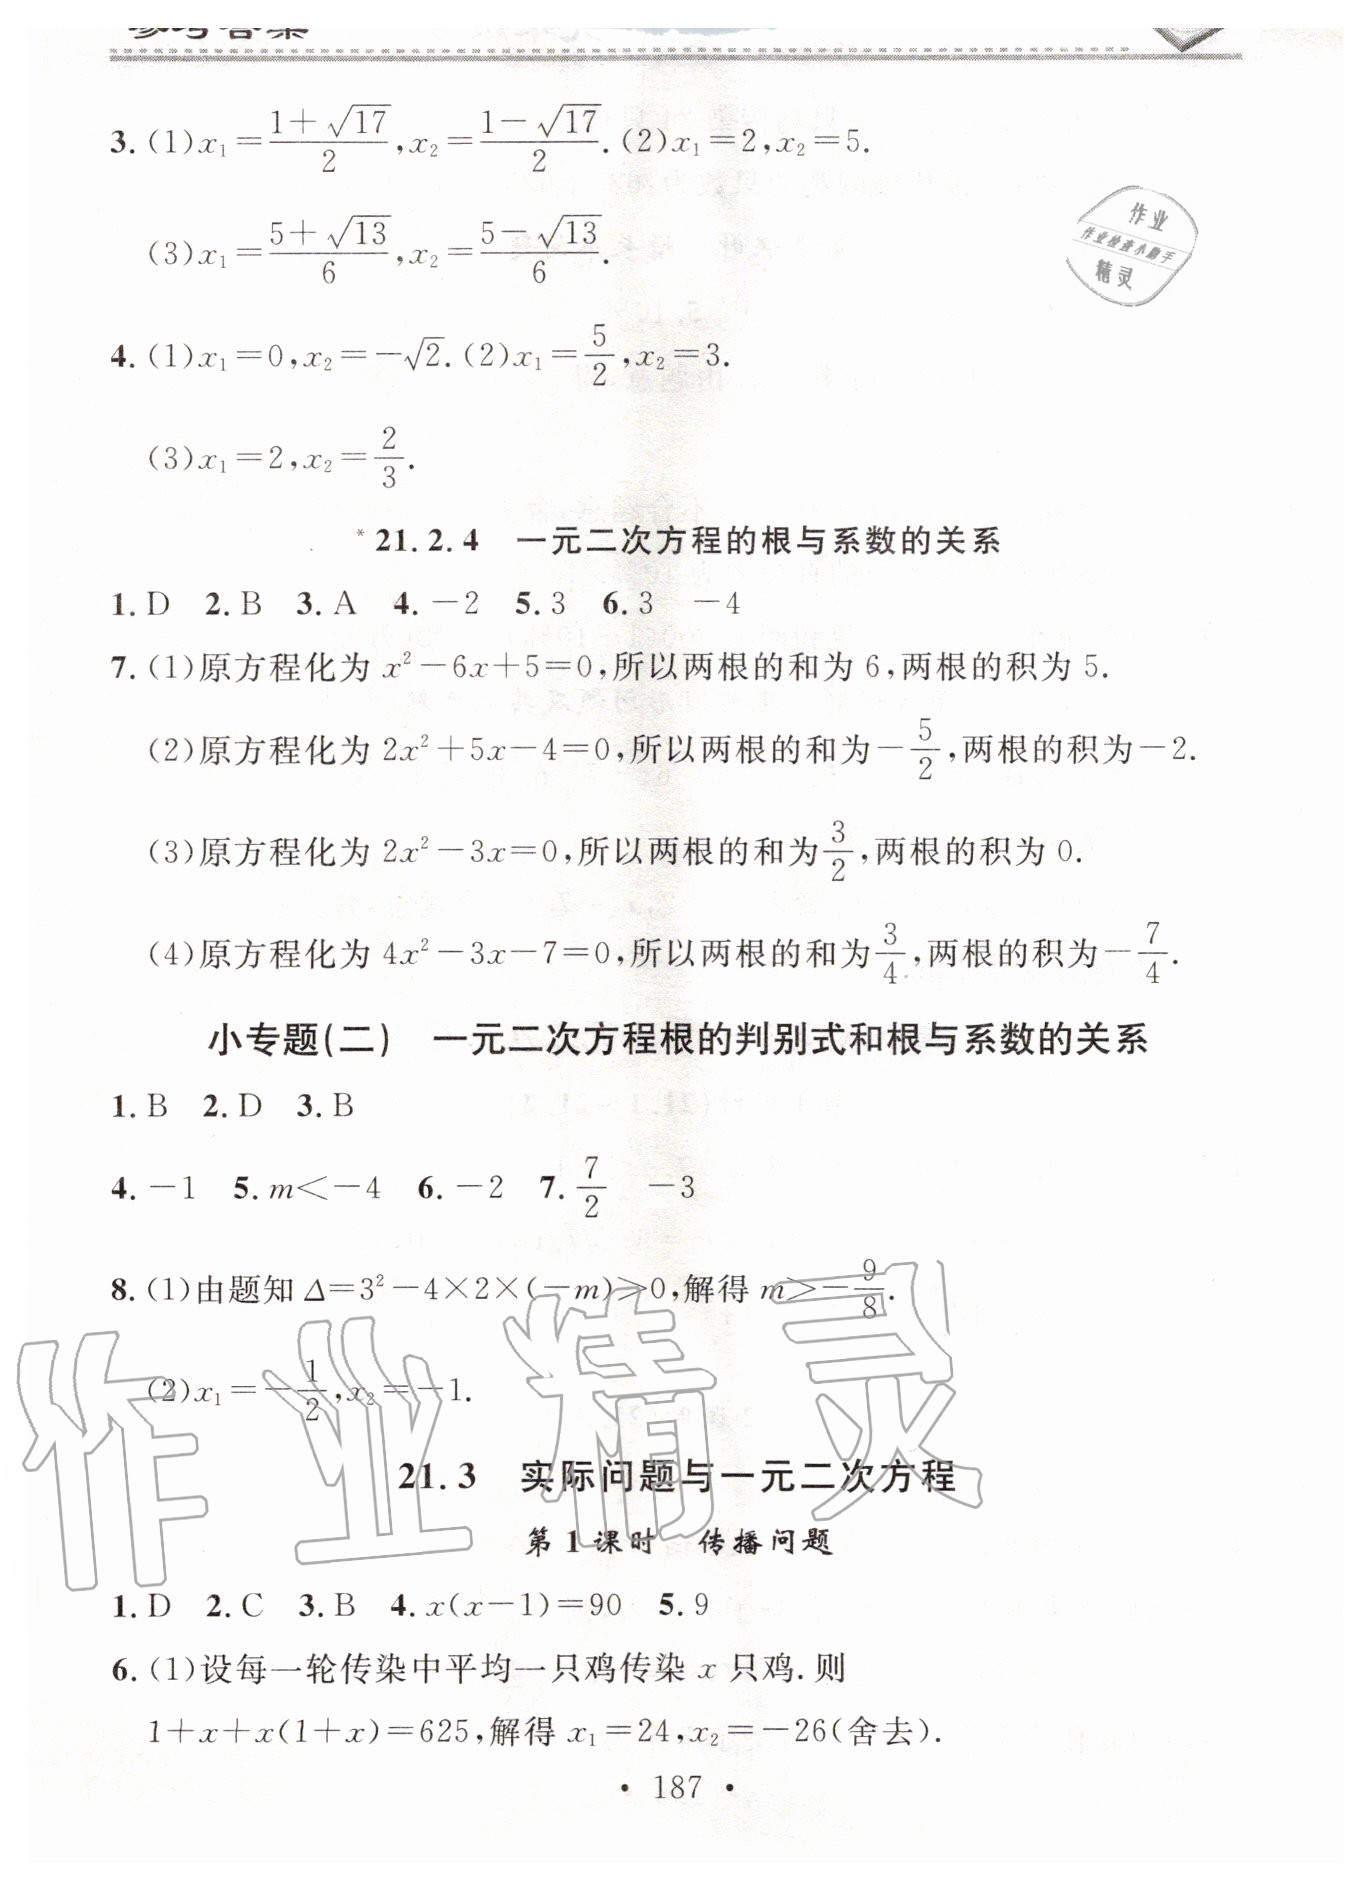 参考答案
3.(1)x₁=(1+√17)/2,x₂=(1-√17)/2.(2)x₁=2,x₂=5.
(3)x₁=(5+√13)/6,x₂=(5-√13)/6.
作业
作业检查小助手
精灵
4.(1)x₁=0,x₂=-√2.(2)x₁=5/2,x₂=3.
(3)x₁=2,x₂=2/3.
*21.2.4 一元二次方程的根与系数的关系
1.D 2.B 3.A 4.-2 5.3 6.3 -4
7.(1)原方程化为 x²-6x+5=0,所以两根的和为 6,两根的积为 5.
(2)原方程化为 2x²+5x-4=0,所以两根的和为-5/2,两根的积为-2.
(3)原方程化为 2x²-3x=0,所以两根的和为3/2,两根的积为 0.
(4)原方程化为 4x²-3x-7=0,所以两根的和为3/4,两根的积为-7/4.
小专题(二) 一元二次方程根的判别式和根与系数的关系
1.B 2.D 3.B
4.-1 5.m<-4 6.-2 7.7/2 -3
8.(1)由题知 Δ=3²-4×2×(-m)≥0,解得 m>-9/8.
(2)x₁=-1/2,x₂=-1.
作业精灵
21.3 实际问题与一元二次方程
第1课时 传播问题
1.D 2.C 3.B 4.x(x-1)=90 5.9
6.(1)设每一轮传染中平均一只鸡传染 x 只鸡.则
1+x+x(1+x)=625,解得 x₁=24,x₂=-26(舍去).
• 187 •